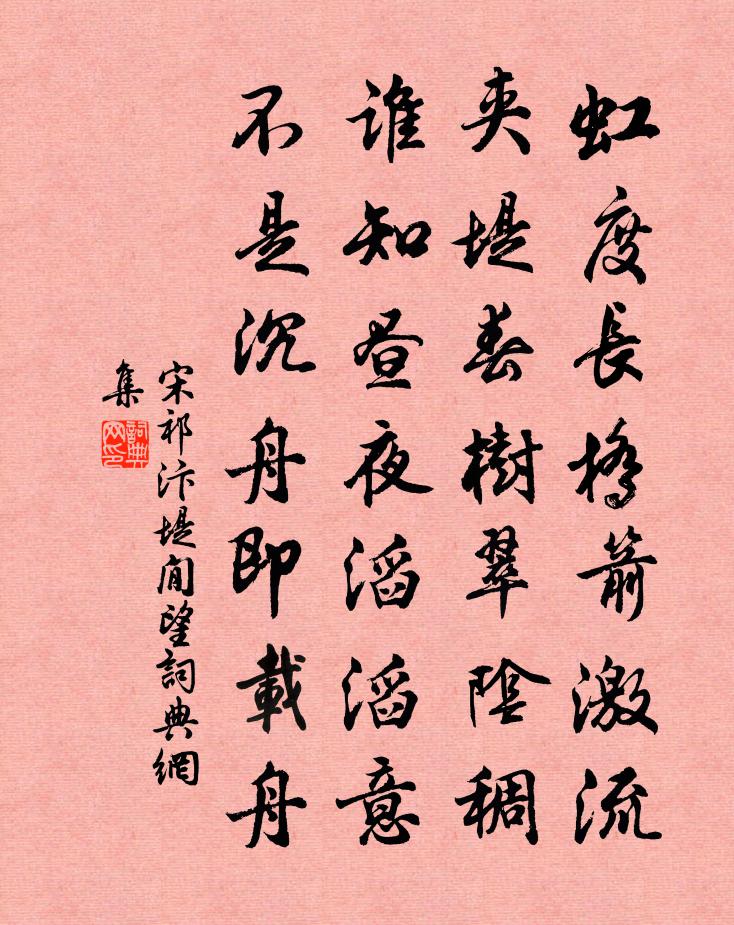 虹度長橋箭激流
夹堤春樹翠陰稠
誰知昼夜滔滔意
不是沉舟即載舟
宋祁汴堤閒望詞典網
集
詞典
网印